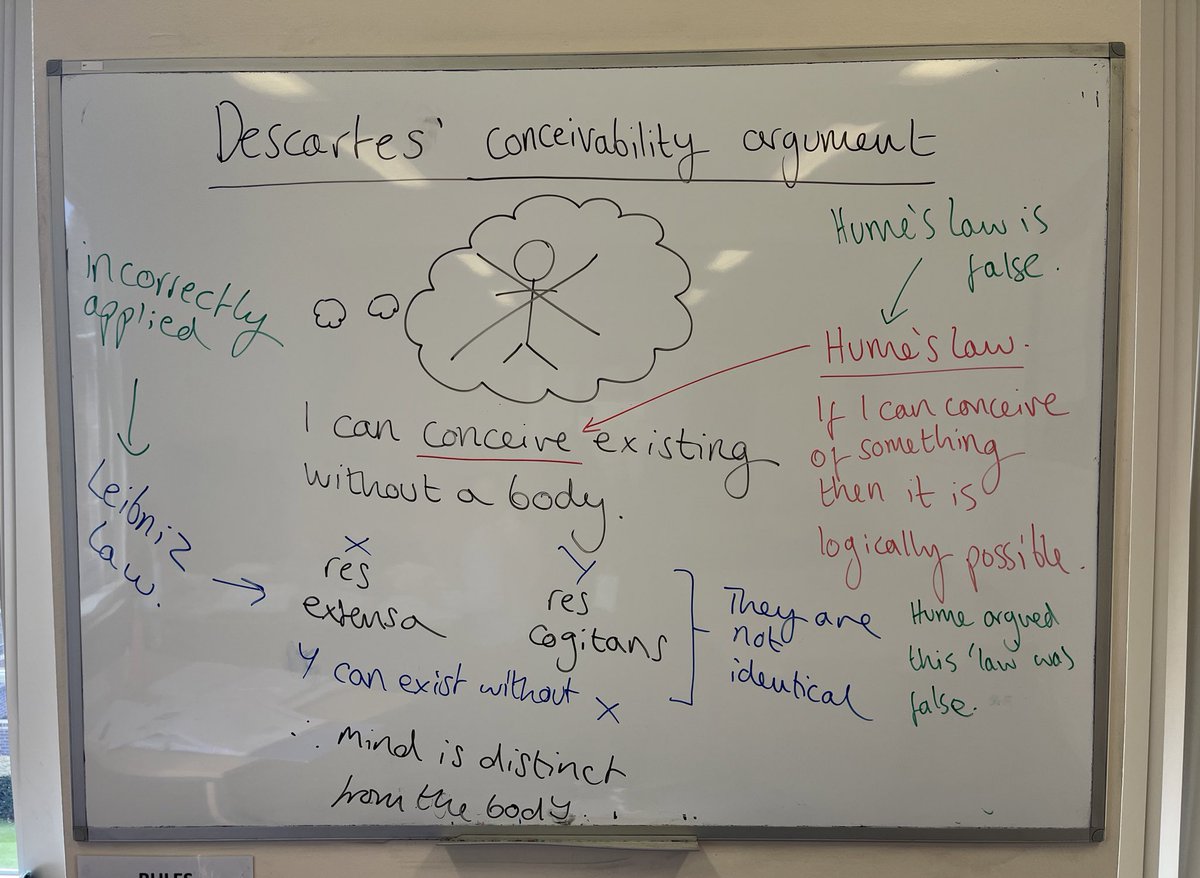 Descartes' conceivability argument
Hume's law is
false.
incorrectly
applied
Hume's law.
If I can conceive
of something
then it is
logically possible.
I can conceive existing
without a body.
Leibniz
law.
x
res
extensa
y
res
cogitans
y can exist without x
They are
not
identical
Hume argued
this 'law was
false.
∴ Mind is distinct
from the body.
RULES